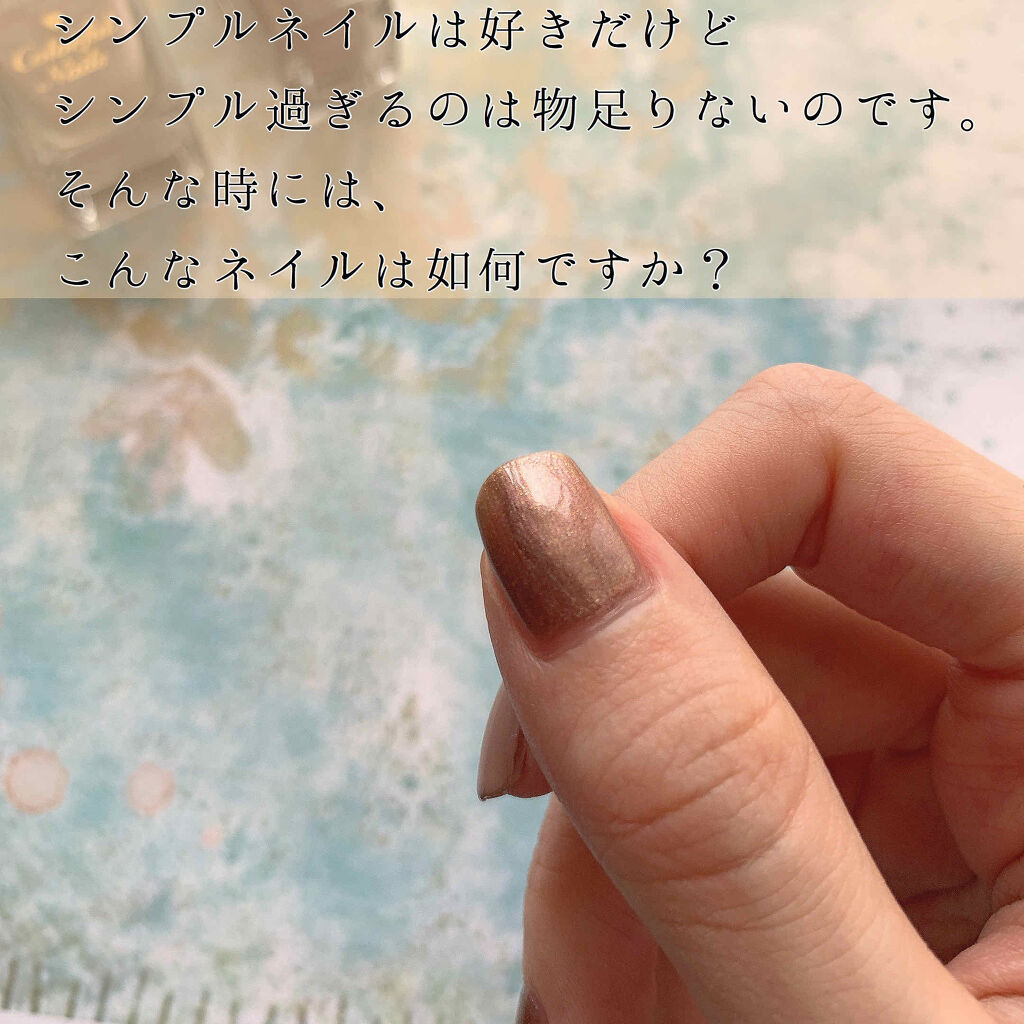 シンプルネイルは好きだけど
シンプル過ぎるのは物足りないのです。
そんな時には、
こんなネイルは如何ですか？